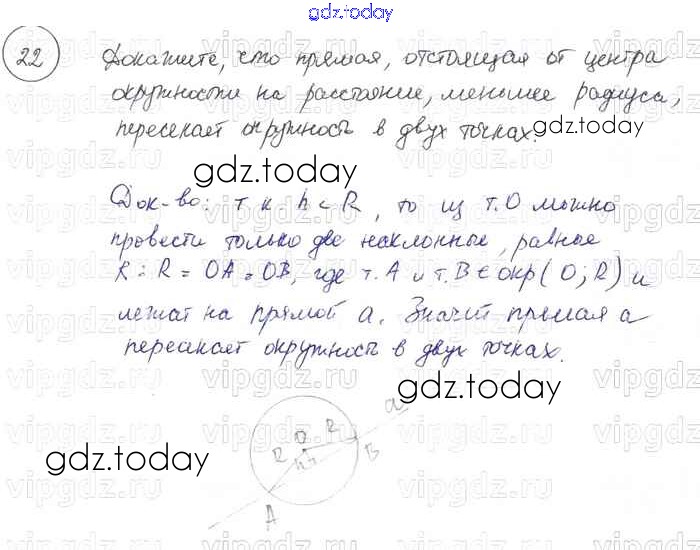 gdz.today
22
Докажите, что прямая, отстоящая от центра
окружности на расстояние, меньшее радиуса,
пересекает окружность в двух точках.
gdz.today
gdz.today
Док-во: т к h < R, то из т.О можно
провести только две наклонные, равные
R: R = OA = OB, где т.А и т.В ∈ окр(О; R) и
лежат на прямой a. Значит прямая a
пересекает окружность в двух точках.
gdz.today
a
O R
R h B
gdz.today
A
vipgdz.ru